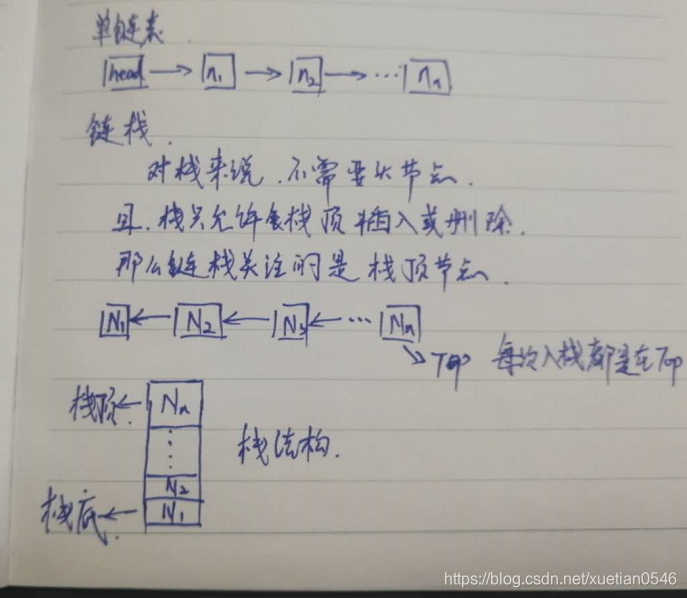 单链表
head → n₁ → n₂ → ··· nₙ
链栈.
对栈来说. 不需要头节点.
且. 栈只允许在栈顶插入或删除.
那么链栈关注的是栈顶节点.
N₁ ← N₂ ← N₃ ← ··· Nₙ
→ Top 每次入栈都是在Top
栈顶. ← Nₙ
⋮
栈结构.
N₂
栈底. ← N₁
https://blog.csdn.net/xuetian0546